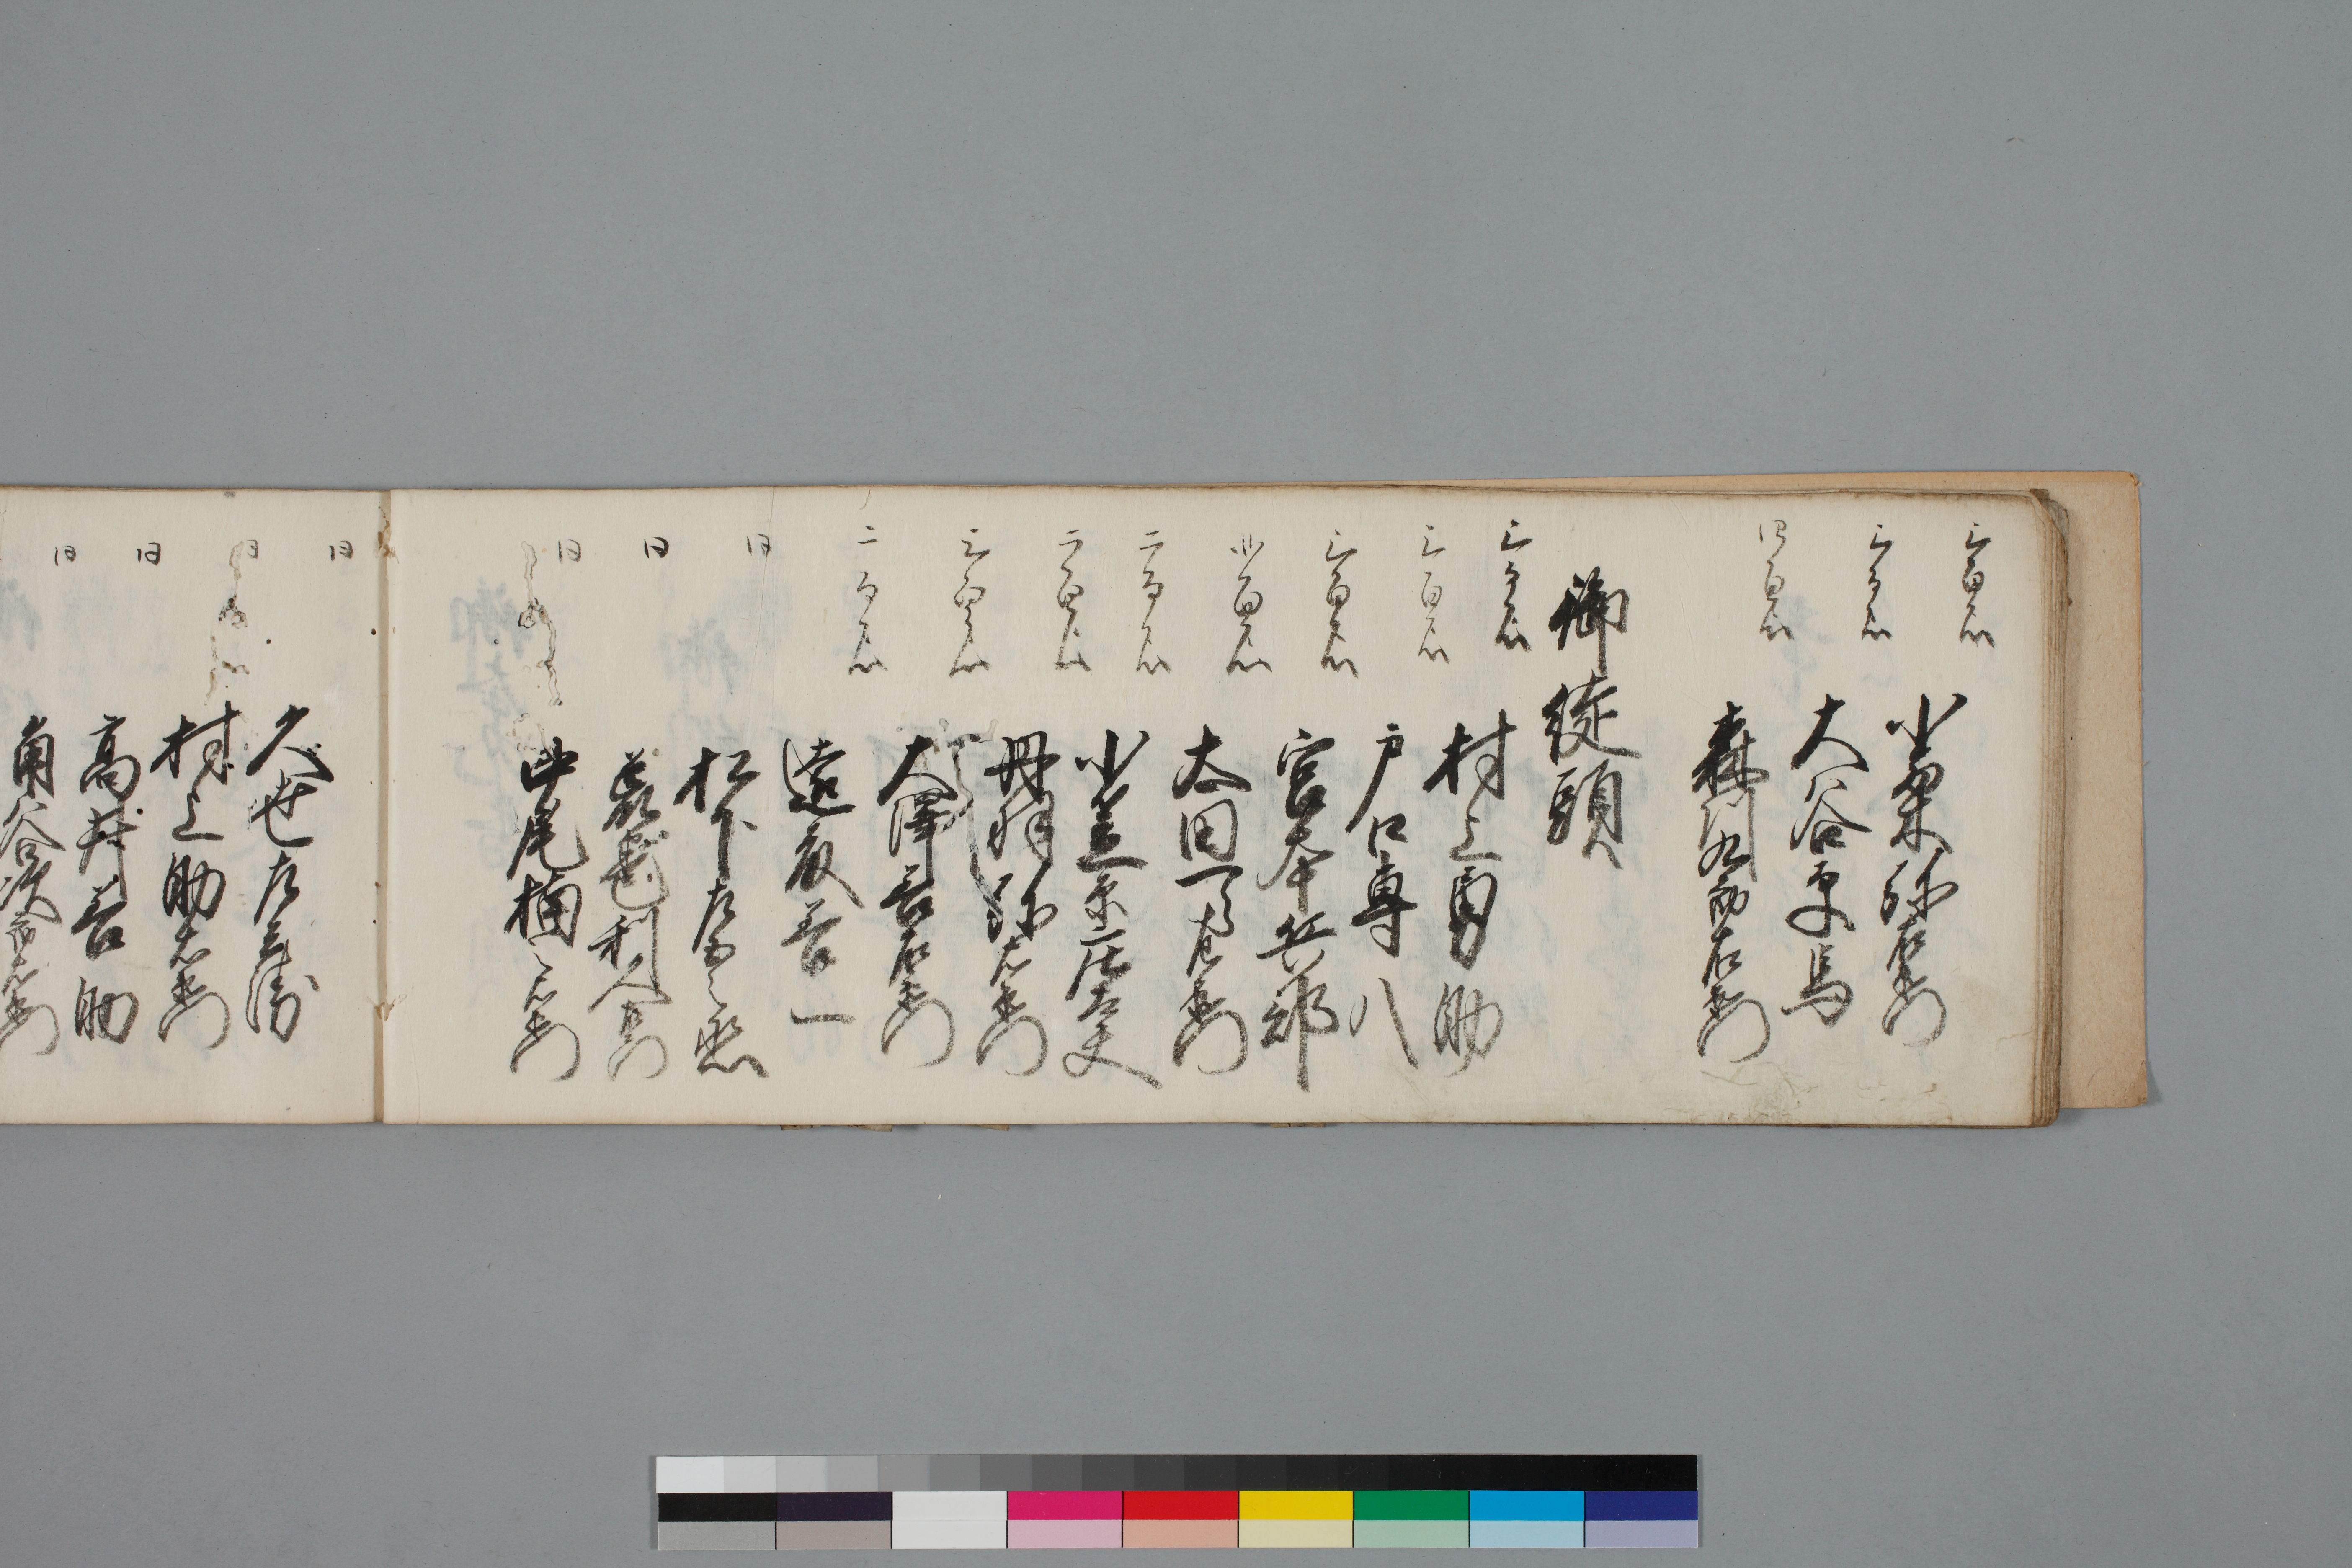 三百石 小栗弥右衛門
三百石 大谷更馬
四百石 森川九郎右衛門
御徒頭
三百石 村上勇助
三百石 戸口専八
三百石 宮本兵部
百石 太田一郎左衛門
二百石 小笠原庄太夫
二百石 丹羽弥右衛門
三百石 大澤吉右衛門
二百石 遠藤吾一
同 松下
同 利人
同 中尾楠右衛門
同 久世左
同 村上助右衛門
同 高井吾助
同 角谷次郎右衛門